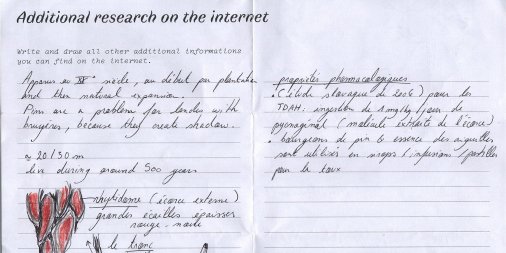 Additional research on the internet
Write and draw all other additional informations
you can find on the internet.
Apparus au siècle, au début par plantation
and then natural expansion.
Pins are a problem for landes with
bruyères, because they create shadow.
≈ 20/30 m
live during around 500 years
rhytidome (écorce externe)
grandes écailles épaisses
rouge-
le tronc
propriétés pharmacologiques
• (étude slovaque de 2006) pour les
TDAH: ingestion de 1mg/kg/jour de
pycnogénol (molécule extraite de l'écorce)
• bourgeons de pin & essence des aiguilles
sont utilisés en sirops/infusions/pastilles
pour la toux